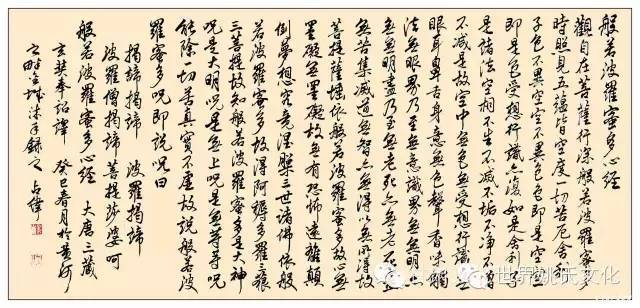 般若波羅蜜多心經
觀自在菩薩行深般若波羅蜜多
時照見五蘊皆空度一切苦厄舍利
子色不異空空不異色色即是空空
即是色受想行識亦復如是舍利子
是諸法空相不生不滅不垢不淨不增
不減是故空中無色無受想行識無
眼耳鼻舌身意無色聲香味觸
法無眼界乃至無意識界無無明亦
無無明盡乃至無老死亦無老死盡
無苦集滅道無智亦無得以無所得故
菩提薩埵依般若波羅蜜多故心無
罣礙無罣礙故無有恐怖遠離顛
倒夢想究竟涅槃三世諸佛依般
若波羅蜜多故得阿耨多羅三藐
三菩提故知般若波羅蜜多是大神
咒是大明咒是無上咒是無等等咒
能除一切苦真實不虛故說般若波
羅蜜多咒即說咒曰
揭諦揭諦 波羅揭諦
波羅僧揭諦 菩提莎婆呵
般若波羅蜜多心經 大唐三藏
玄奘奉詔譯 癸巳春月於黃河
之畔金城沐手錄之
世界姚氏文化